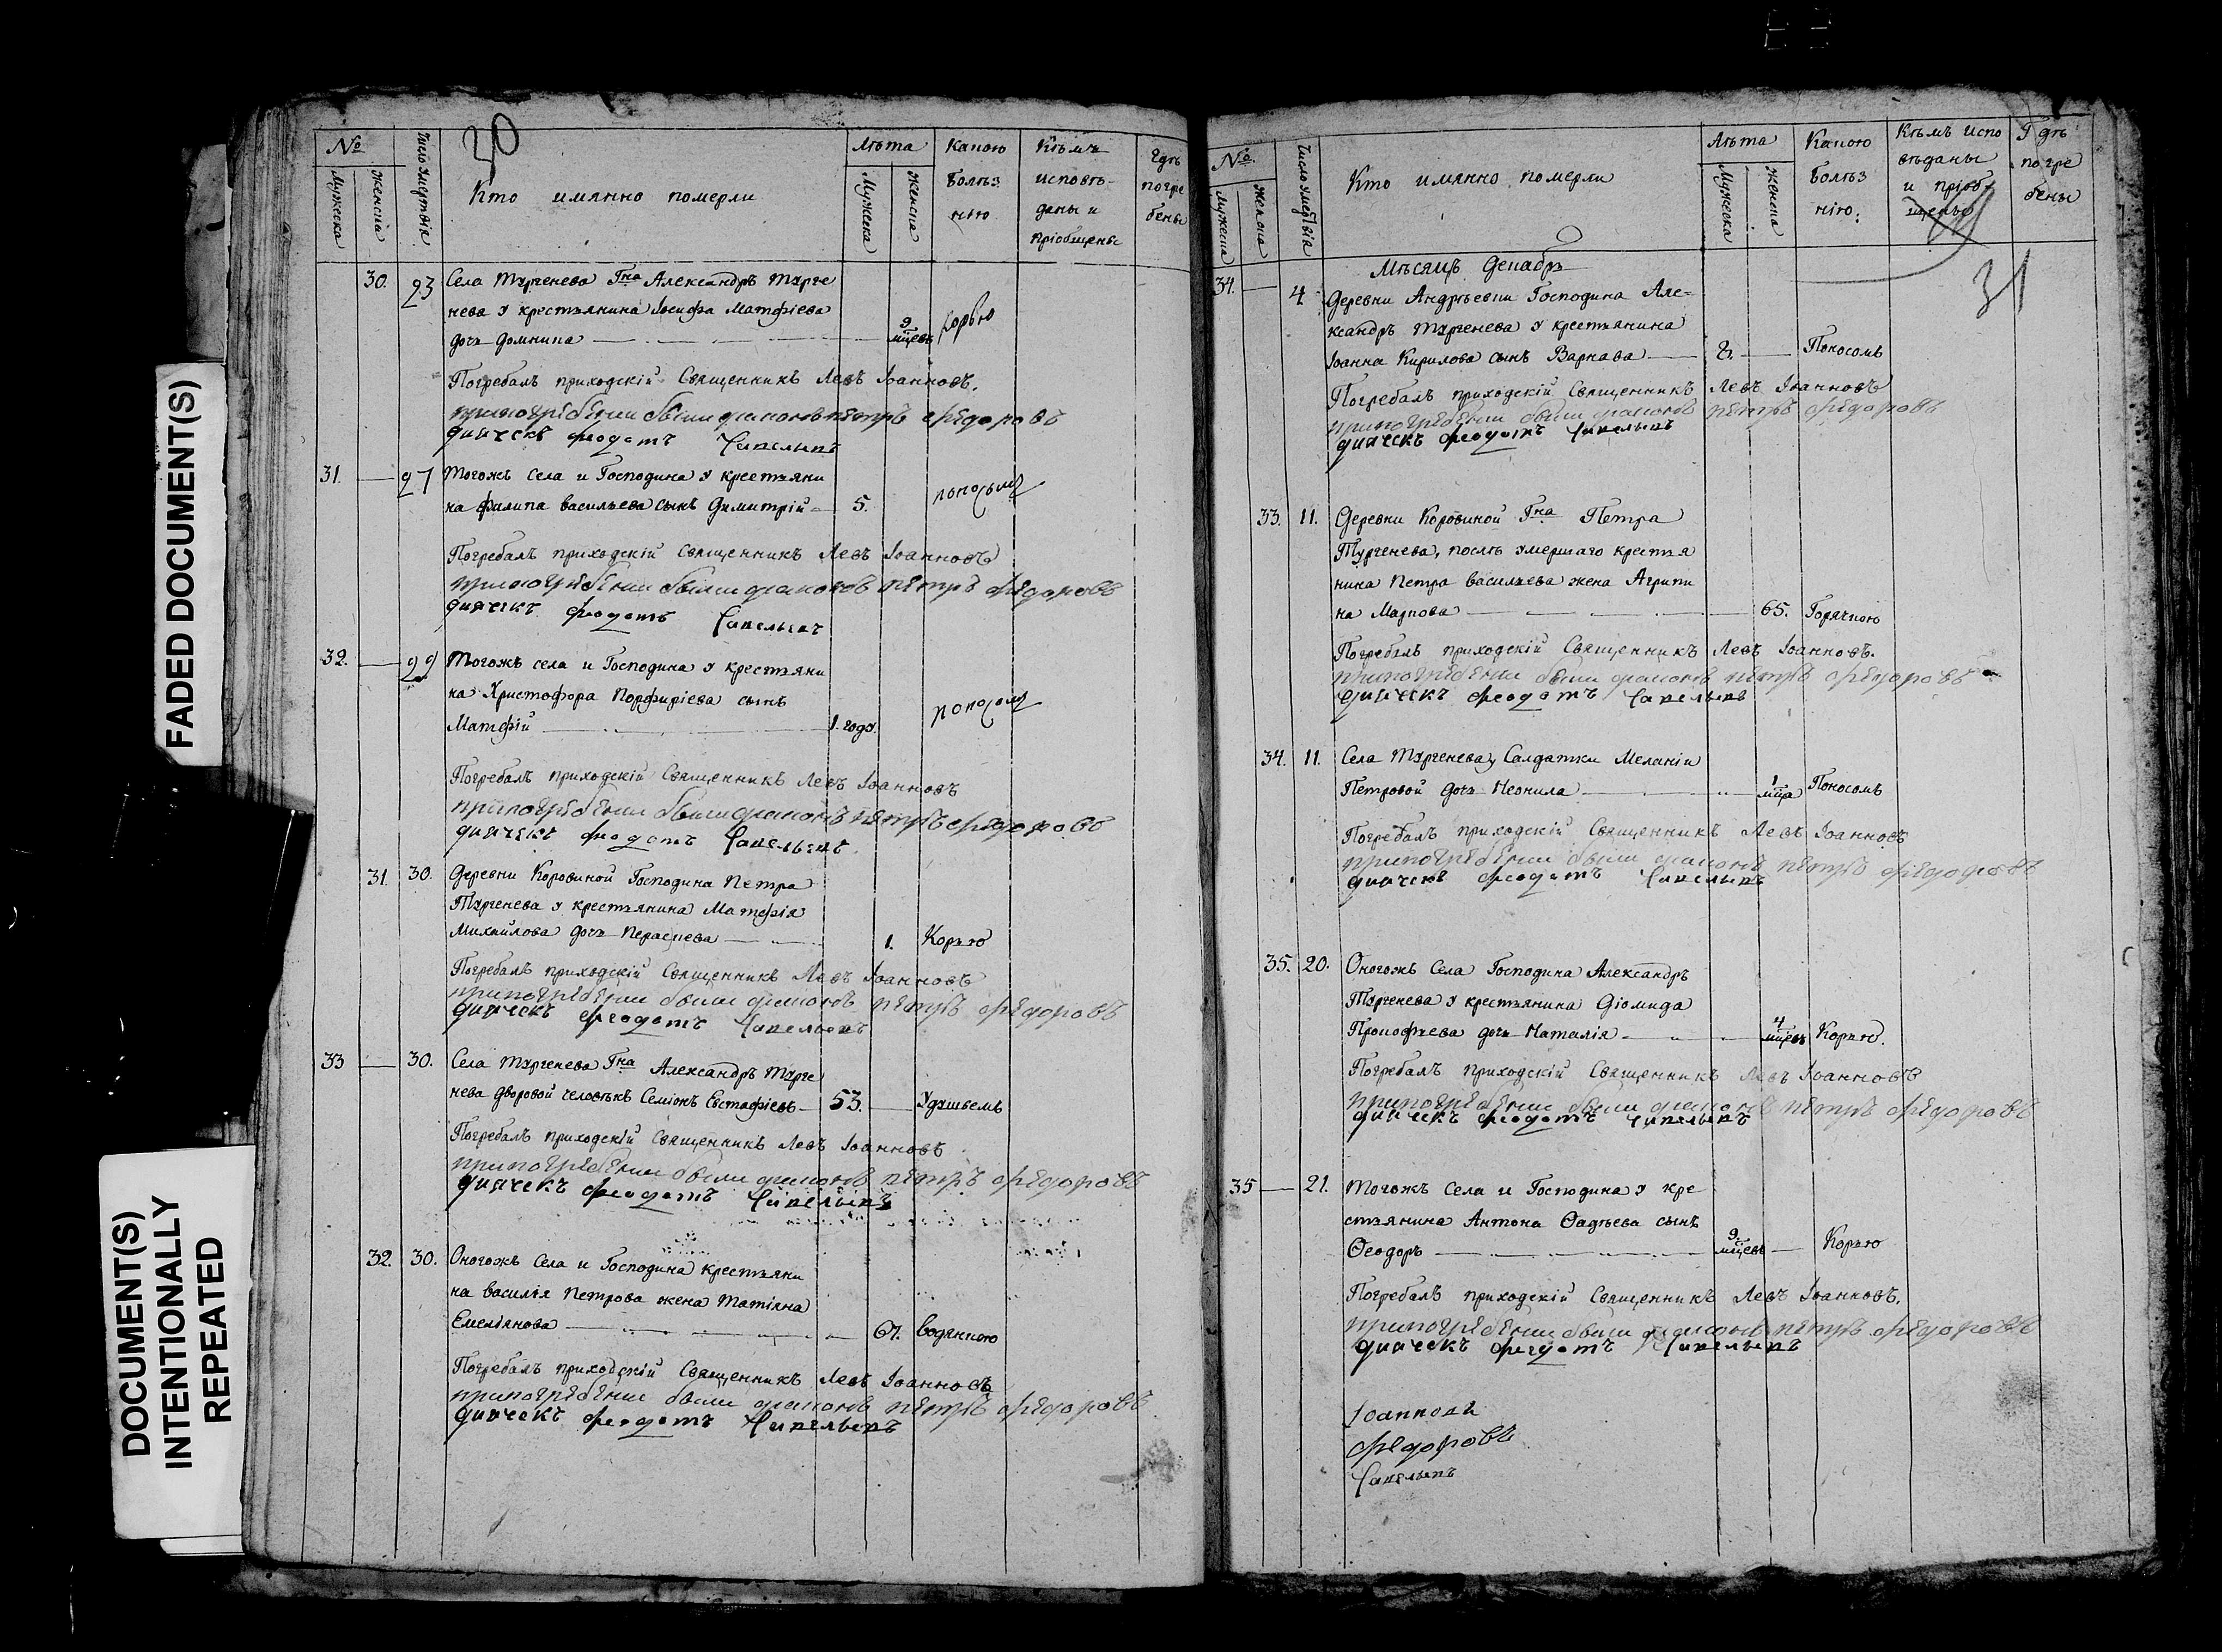 FADED DOCUMENT(S)
DOCUMENT(S)
INTENTIONALLY
REPEATED
30
№
Мужеска
Женска
Число умертвія
Кто имянно померли
Лѣта
Мужеска
Женска
Какою
болѣз
нію
Кѣмъ
исповѣ-
даны и
пріобщены
Гдѣ
погре
бены
30. 23 Села Тургенева Гна Александръ Турге
нева у крестьянина Іосифа Матфіева
дочь Домника 9 мцевъ корью
Погребалъ приходскій Священникъ Левъ Іоанновъ.
при погребении были диаконъ петръ федоровъ
дьячекъ феодотъ
31. 27 Тогожъ села и Господина у крестьяни
на Филипа Васильева сынъ Димитрій 5. поносомъ
Погребалъ приходскій Священникъ Левъ Іоанновъ
при погребении были диаконъ петръ федоровъ
дьячекъ феодотъ
32. 29 Тогожъ села и Господина у крестьяни
на Христофора Порфиріева сынъ
Матфій 1. году поносомъ
Погребалъ приходскій Священникъ Левъ Іоанновъ
при погребении были диаконъ петръ федоровъ
дьячекъ феодотъ
31 30. Деревни Коровиной Господина Петра
Тургенева у крестьянина Матфія
Михайлова дочь Параскева 1. Корью
Погребалъ приходскій Священникъ Левъ Іоанновъ
при погребении были диаконъ петръ федоровъ
дьячекъ феодотъ
33 30. Села Тургенева Гна Александръ Турге
нева дворовой человѣкъ Семіонъ Евстафіевъ 53. Удушьемъ
Погребалъ приходскій Священникъ Левъ Іоанновъ
при погребении были диаконъ петръ федоровъ
дьячекъ феодотъ
32. 30. Оногожъ Села и Господина крестьяни
на Василія Петрова жена Татіана
Емеліянова 67. Водяною
Погребалъ приходскій Священникъ Левъ Іоанновъ
при погребении были диаконъ петръ федоровъ
дьячекъ феодотъ
№
Мужеска
Женска
Число умертвія
Кто имянно померли
Лѣта
Мужеска
Женска
Какою
болѣз
нію:
Кѣмъ испо
вѣданы
и пріоб-
щены
Гдѣ
погре
бены
31
Мѣсяцъ Декабрь
34. 4 Деревни Андрѣевки Господина Але-
ксандръ Тургенева у крестьянина
Іоанна Кирилова сынъ Варнава 2. Поносомъ
Погребалъ приходскій Священникъ Левъ Іоанновъ
при погребении были диаконъ петръ федоровъ
дьячекъ феодотъ
33. 11. Деревни Коровиной Гна Петра
Тургенева, послѣ умершаго крестья
нина Петра Васильева жена Агрипи
на Маркова 65. Горячкою
Погребалъ приходскій Священникъ Левъ Іоанновъ.
при погребении были диаконъ петръ федоровъ
дьячекъ феодотъ
34. 11. Села Тургенева, Салдатки Меланіи
Петровой дочь Неонила 1 мца Поносомъ
Погребалъ приходскій Священникъ Левъ Іоанновъ
при погребении были диаконъ петръ федоровъ
дьячекъ феодотъ
35. 20. Оногожъ Села Господина Александръ
Тургенева у крестьянина Діомида
Прокофьева дочь Наталія 4 мцевъ Корью.
Погребалъ приходскій Священникъ Левъ Іоанновъ
при погребении были диаконъ петръ федоровъ
дьячекъ феодотъ
35 21. Тогожъ Села и Господина у кре
стьянина Антона Фадѣева сынъ
Ѳеодоръ 9. мцевъ Корью
Погребалъ приходскій Священникъ Левъ Іоанновъ.
при погребении были диаконъ петръ федоровъ
дьячекъ феодотъ
Іоанновъ
федоровъ